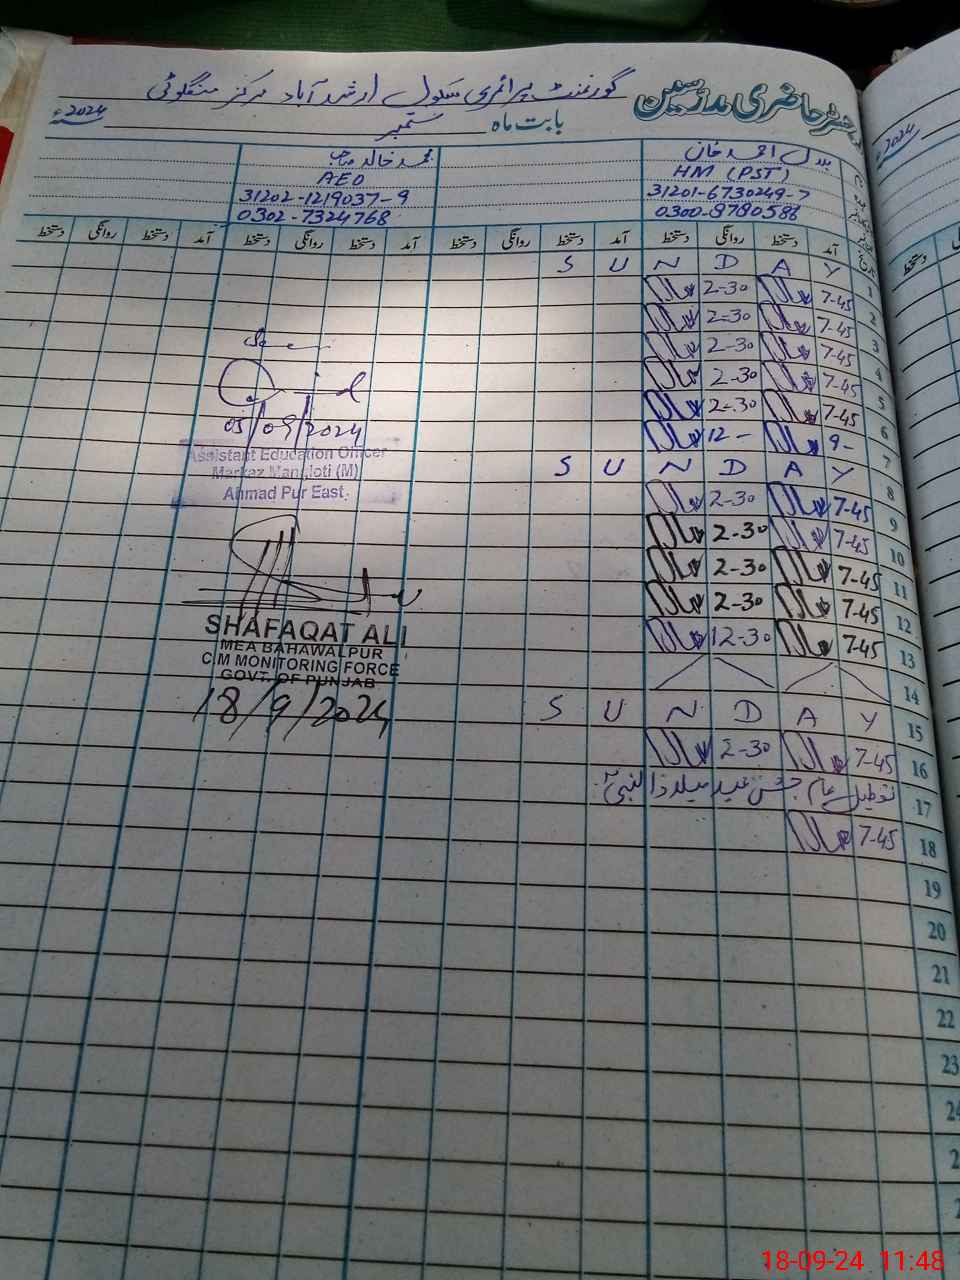 رجسٹر حاضری مدرسین گورنمنٹ پرائمری سکول ارشد آباد مرکز منگلوٹی
بابت ماہ ستمبر 2024ء
احمد خان محمد خالد صاحب
HM (PST) AEO
31201-6730249-7 31202-1219037-9
0300-8780588 0302-7324768
آمد دستخط روانگی دستخط آمد دستخط روانگی دستخط آمد دستخط روانگی دستخط
1 S U N D A Y
2 7-45 2-30
3 7-45 2-30
4 7-45 2-30
5 7-45 2-30
6 7-45 2-30
7 9- 12-
8 S U N D A Y
9 7-45 2-30
10 7-45 2-30
11 7-45 2-30
12 7-45 2-30
13 7-45 12-30
14
15 S U N D A Y
16 7-45 2-30
17 تعطیل عام جشن عید میلاد النبیؐ
18 7-45
19
20
21
22
23
03/09/2024
Assistant Education Officer
Markaz Mangloti (M)
Ahmad Pur East.
SHAFAQAT ALI
MEA BAHAWALPUR
C.M MONITORING FORCE
GOVT. OF PUNJAB
18/9/2024
2024ء
دستخط
18-09-24 11:48